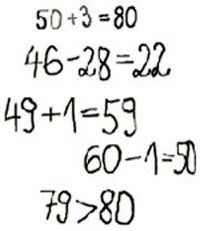 50+3=80
46-28=22
49+1=59
60-1=50
79>80